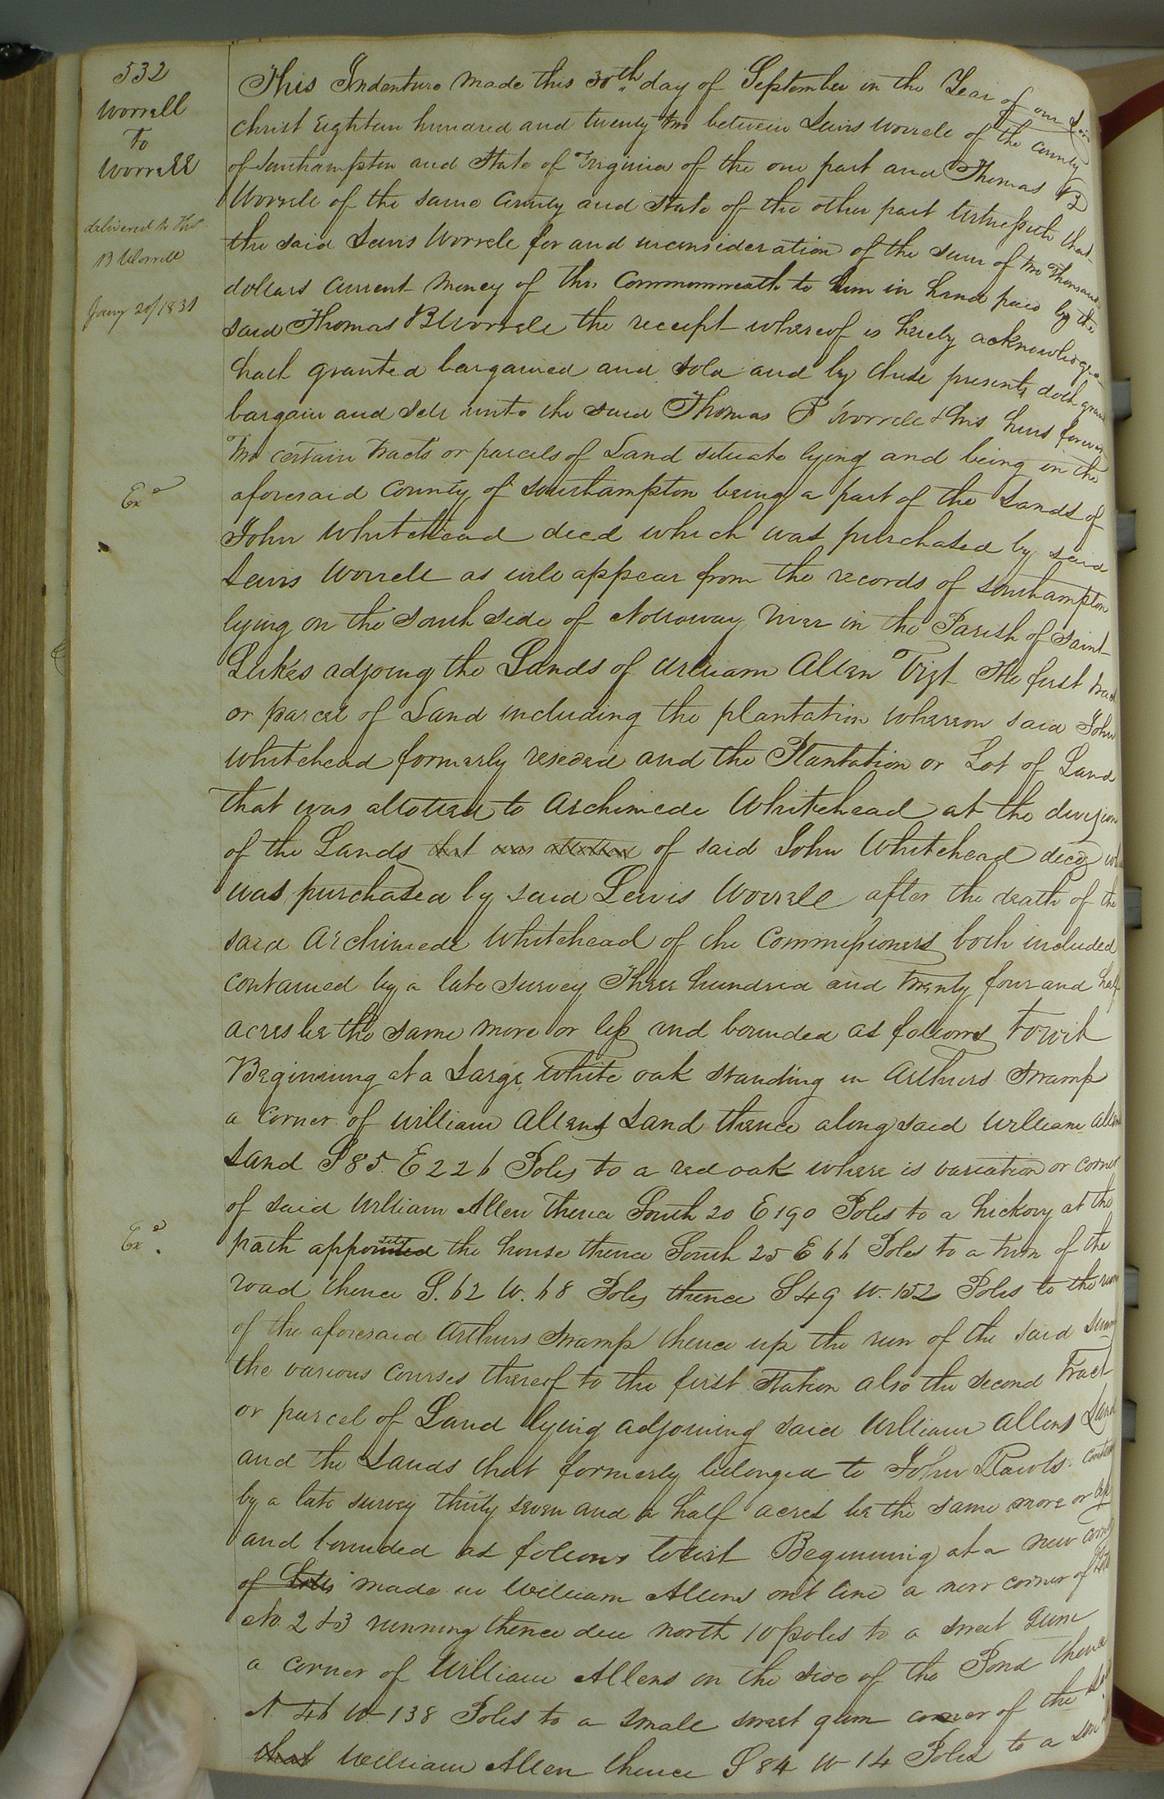 532
Worrell
To
Worrell
delivered to Thos
B Worrell
Jany 20th 1831
Exd
Exd.
This Indenture made this 30th day of September in the Year of our
Christ Eighteen hundred and twenty two between Lewis Worrell of the County
of Southampton and State of Virginia of the one part and Thomas B
Worrell of the same County and State of the other part Witnesseth that
the said Lewis Worrell for and inconsideration of the sum of two thousand
dollars Current Money of this Commonwealth to him in hand paid by the
said Thomas B Worrell the receipt whereof is hereby acknowledged
hath granted bargained and sold and by these presents doth grant
bargain and sell unto the said Thomas B Worrell & his heirs forever
Two certain tracts or parcels of Land situate lying and being in the
aforesaid County of Southampton being a part of the Lands of
John Whitehead decd which was purchased by said
Lewis Worrell as will appear from the records of Southampton
lying on the South side of Nottoway river in the Parish of Saint
Lukes adjoing the Lands of William Allen Vizt The first tract
or parcel of Land including the plantation whereon said John
Whitehead formerly resided and the Plantation or Lot of Land
that was allotted to Archimede Whitehead at the division
of the Lands that was allotted of said John Whitehead decd
was purchased by said Lewis Worrell after the death of the
said Archimede Whitehead of the Commissioners both included
contained by a late survey Three hundred and twenty four and half
acres be the same more or less and bounded as follows Towit
Beginning at a Large white oak standing in Arthurs Swamp
a corner of William Allens Land thence along said William Allens
Land S 85 E 226 Poles to a red oak where is variation or corner
of said William Allen thence South 20 E 190 Poles to a hickory at the
path appointed the house thence South 25 E 66 Poles to a turn of the
road thence S. 62 W. 68 Poles thence S 49 W. 152 Poles to the run
of the aforesaid Arthurs Swamp thence up the run of the said
the various courses thereof to the first Station also the second Tract
or parcel of Land lying adjoining said William Allens Land
and the Lands that formerly belonged to John Rawls
by a late survey thirty seven and a half acres be the same more or less
and bounded as follows towit Beginning at a new corner
of Lots made in William Allens out line a new corner of
No. 2 & 3 running thence due north 10 poles to a sweet Gum
a corner of William Allens on the side of the Pond thence
N 46 W 138 Poles to a small sweet gum corner of the
that William Allen thence S 84 W 14 Poles to a